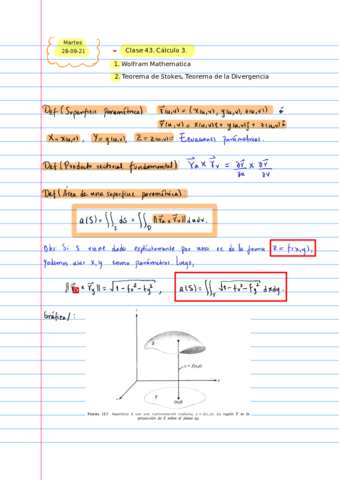 Martes
28-09-21
- Clase 43. Cálculo 3.
1. Wolfram Mathematica
2. Teorema de Stokes, Teorema de la Divergencia
Def (Superficie paramétrica) r⃗(u,v) = (x(u,v), y(u,v), z(u,v)) ó
r⃗(u,v) = x(u,v)î + y(u,v)ĵ + z(u,v)k̂
X = x(u,v), Y = y(u,v), Z = z(u,v) = Ecuaciones paramétricas.
Def (Producto vectorial fundamental) r⃗u × r⃗v = ∂r⃗/∂u × ∂r⃗/∂v
Def (Área de una superficie paramétrica)
a(S) = ∬_S dS = ∬_D ||r⃗u × r⃗v|| du dv.
Obs Si S viene dado explícitamente por una ec de la forma z = f(x,y),
podemos usar x, y como parámetros. Luego,
||r⃗x × r⃗y|| = √(1 - fx² - fy²) , a(S) = ∬_T √(1 - fx² - fy²) dxdy.
Gráfica/:
z
S
z = f(x, y)
0
y
T
(x,y)
x
FIGURA 12.7 Superficie S con una representación explícita, z = f(x, y). La región T es la
proyección de S sobre el plano xy.